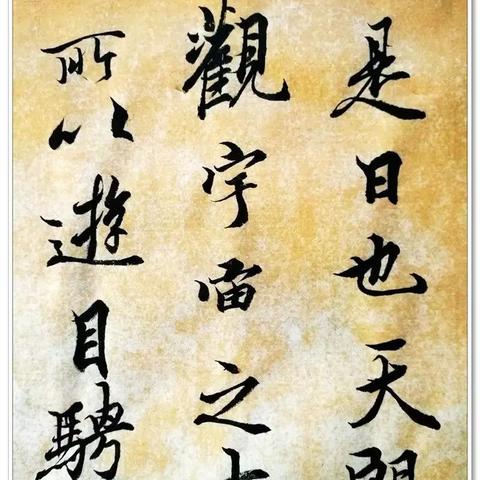 是日也天
觀宇宙之
所以遊目騁